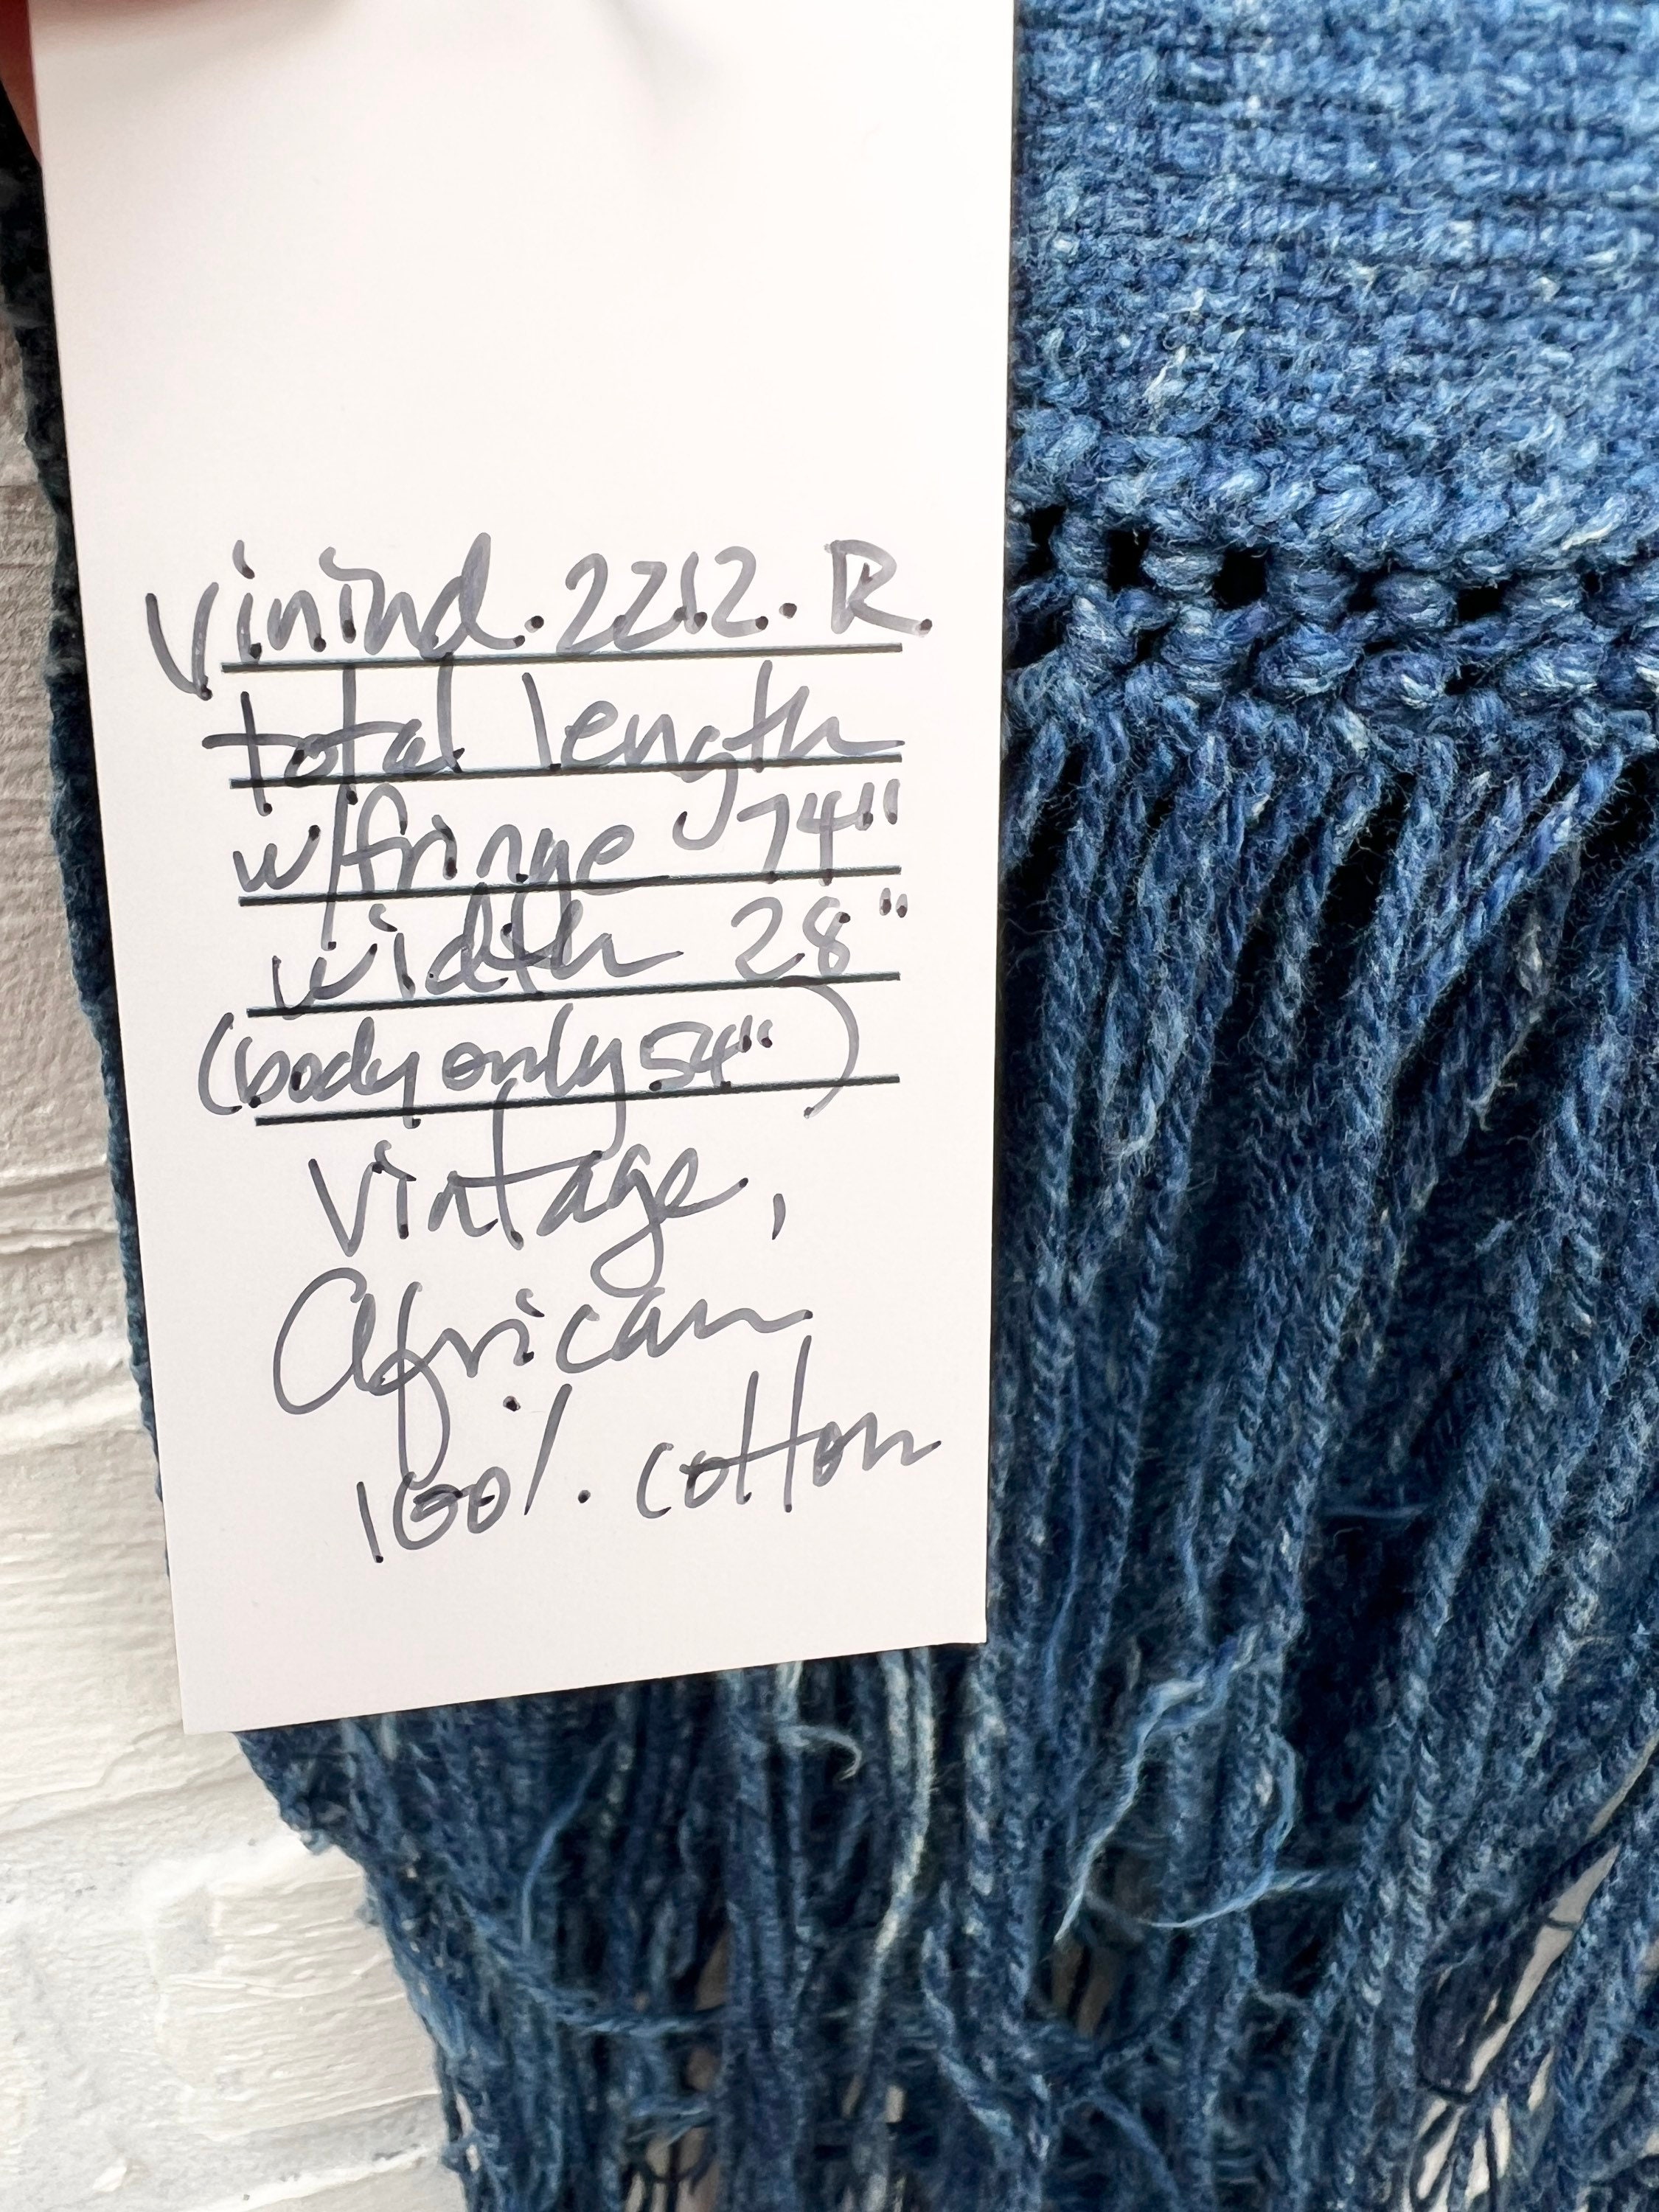 vinind.2212.R.
total length
w/fringe 74"
width 28"
(body only 54")
vintage,
African
100%. cotton